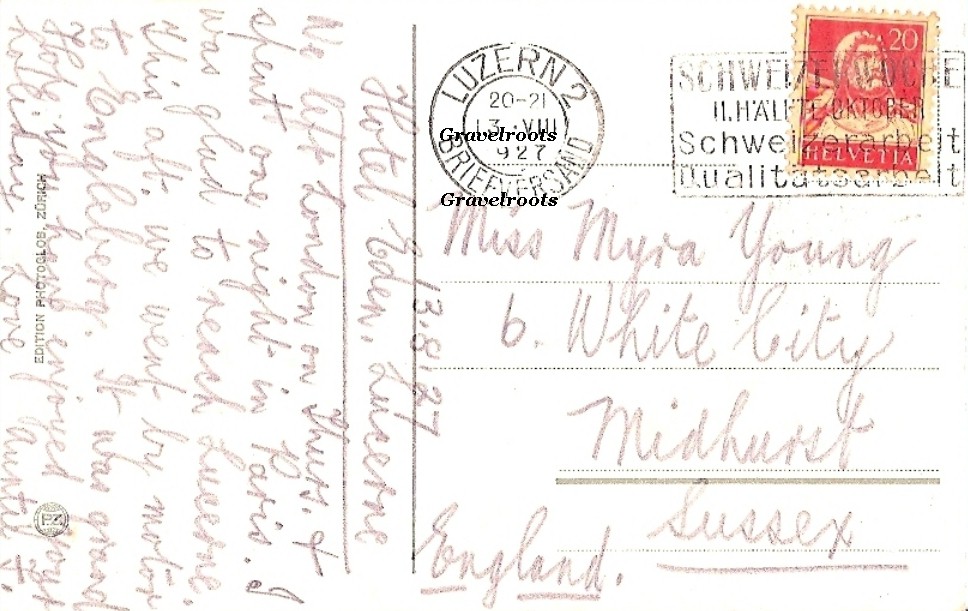 Hotel Eden, Lucerne
13.8.27
We left London on Thurs. &
spent one night in Paris. I
was glad to reach Lucerne.
This aft. we went by motor
to Engleberg. It was grand
Hope you have enjoyed yr
holiday. Love Auntie F.
EDITION PHOTOGLOB, ZÜRICH
PZ
LUZERN 2
20-21
13.VIII
927
BRIEFVERSAND
Gravelroots
Gravelroots
20
HELVETIA
SCHWEIZERWOCHE
II. HÄLFTE OKTOBER
Schweizerarbeit
Qualitätsarbeit
Miss Myra Young
6. White City
Midhurst
Sussex
England.